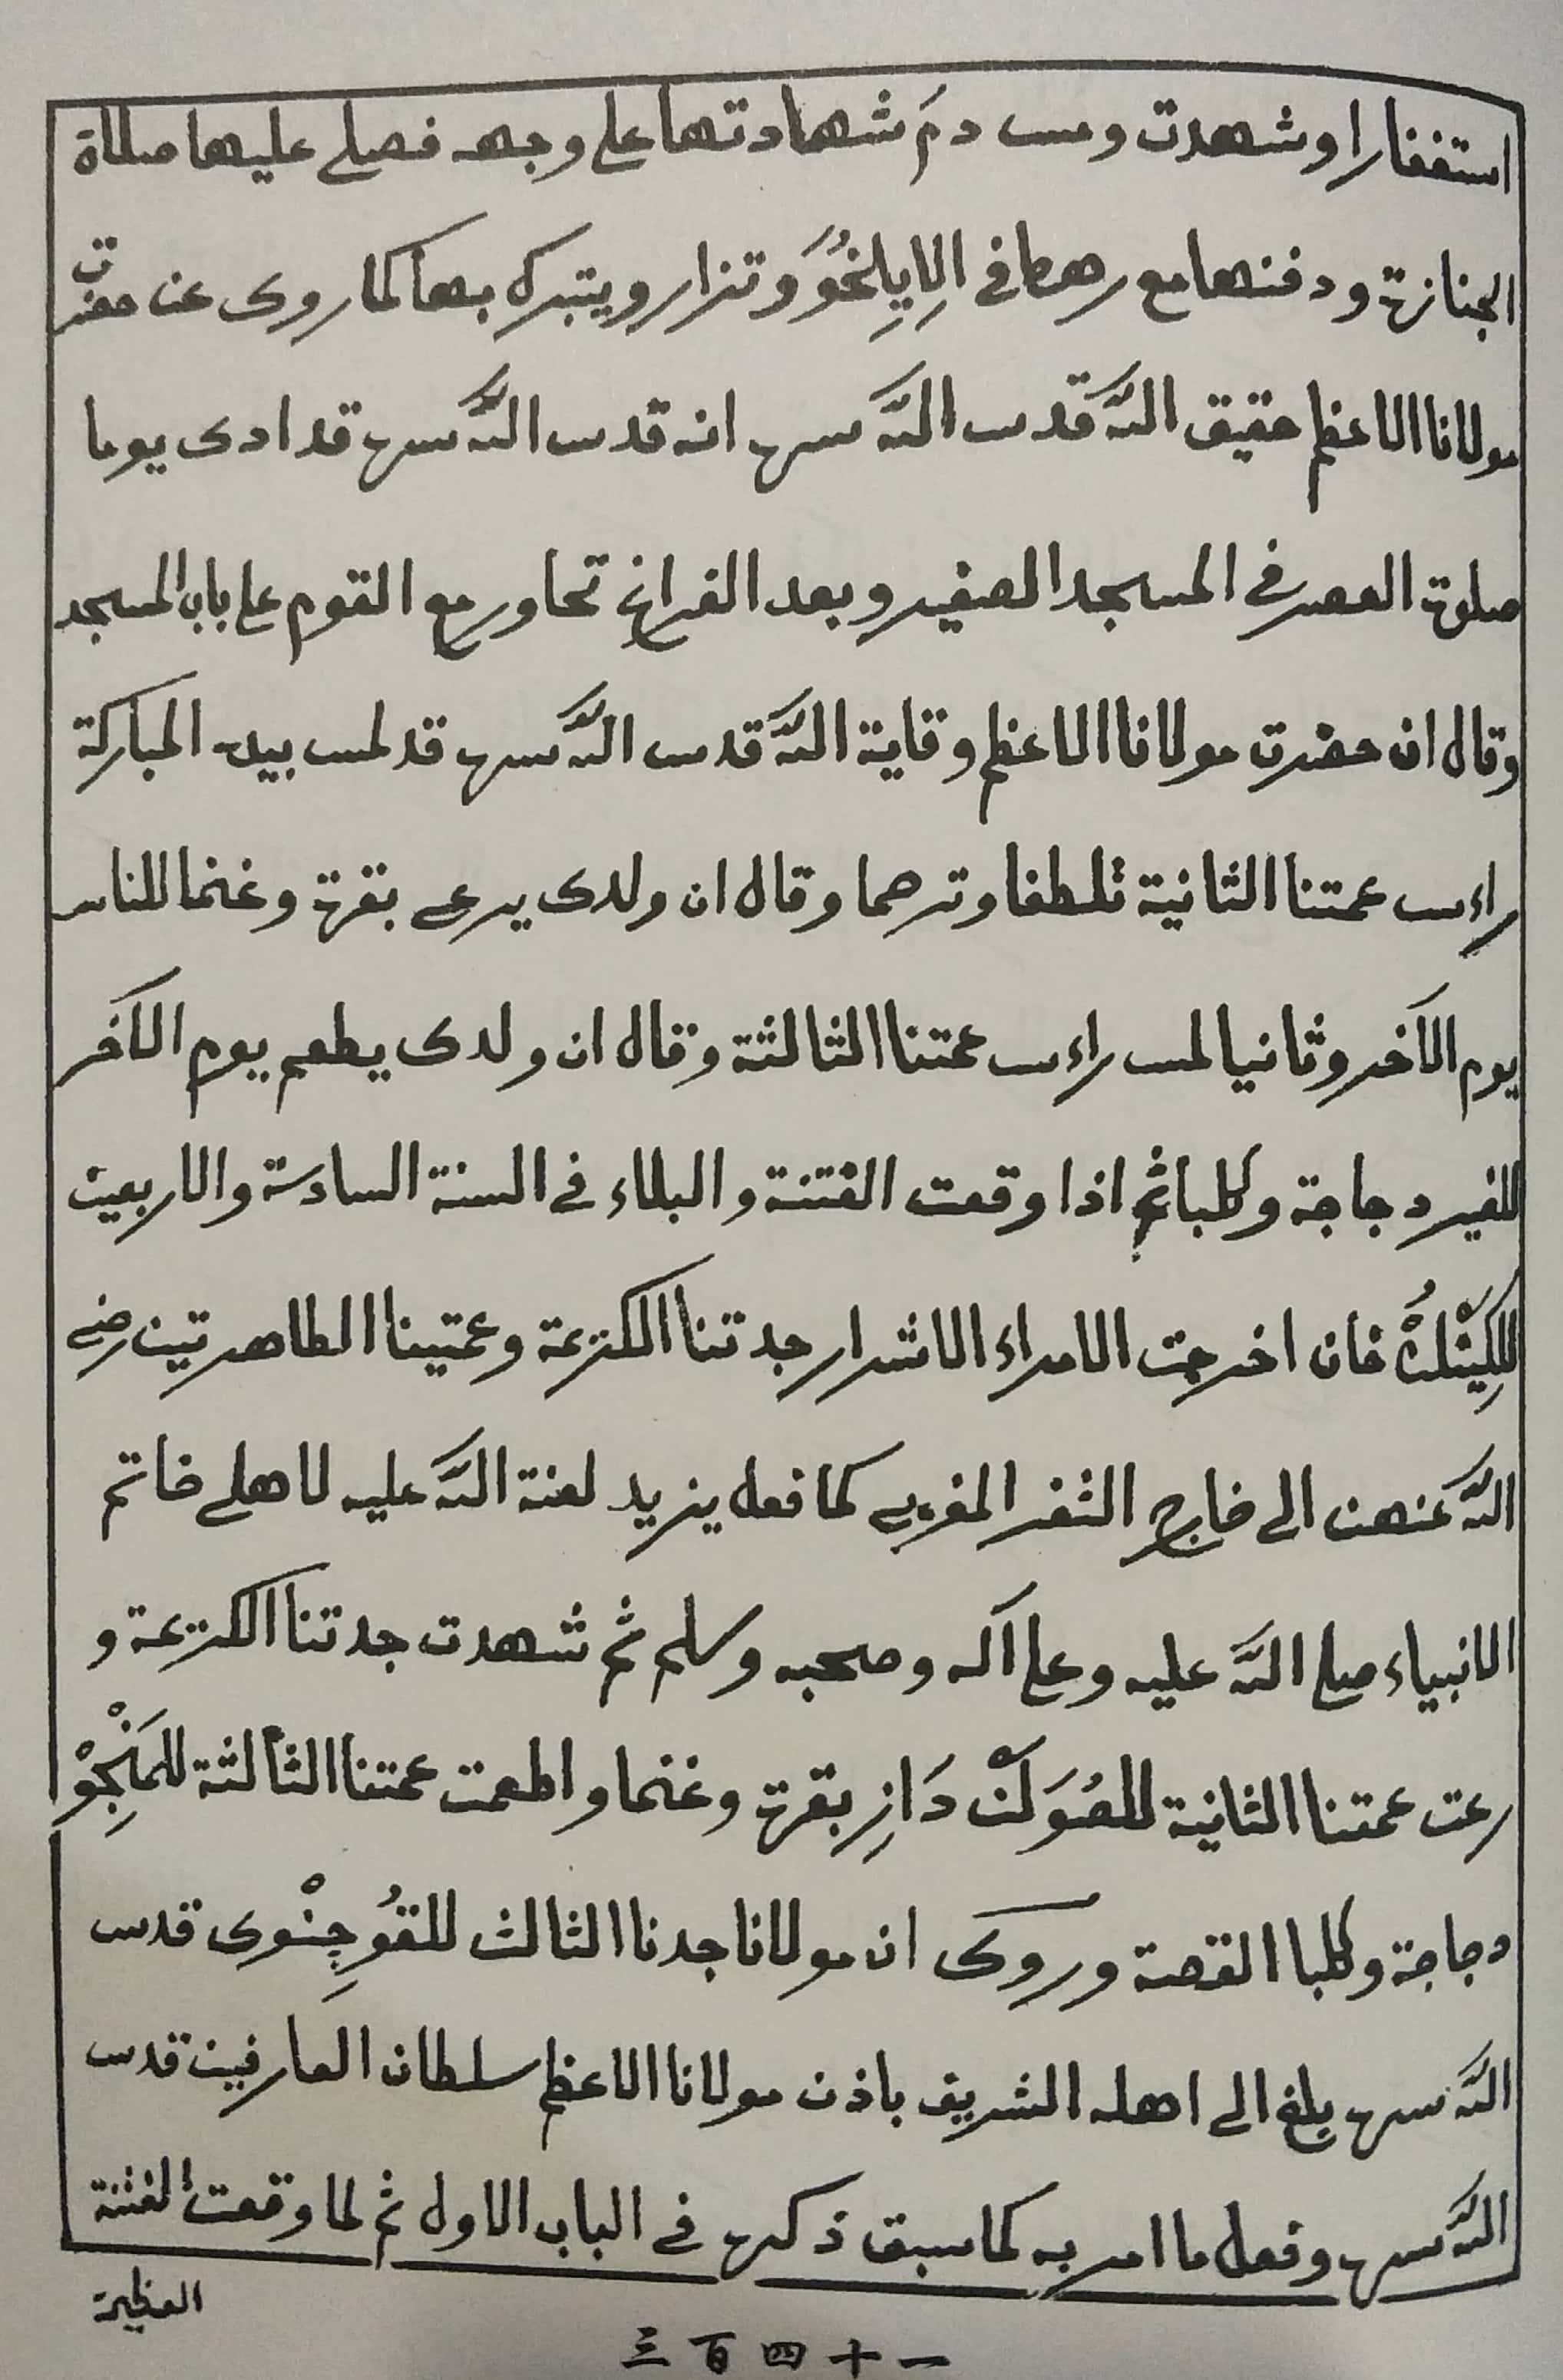 استغفارا وشهدت ومس دمَ شهادتها على وجهه فصلى عليها صلاة
الجنازة ودفنها مع رهط في الِايِلِخُوَ وتزار ويتبرك بها كما روى عن حضرت
مولانا الاعظم حقيق اللّه قدس اللّه سره انه قدس اللّه سره قد ادى يوما
صلوة العصر في المسجد الصغير وبعد الفراغ تحاور مع القوم على باب المسجد
وقال ان حضرت مولانا الاعظم وقاية اللّه قدس اللّه سره قد لمس بيده المباركة
راءس عمتنا الثانية تلطفا وترحما وقال ان ولدى يرعى بقرة وغنما للناس
يوم الآخر وثانيا لمس راءس عمتنا الثالثة وقال ان ولدى يطعم يوم الآخر
للغير دجاجة وكلبا ثم اذا وقعت الفتنة والبلاء في السنة السادسة والاربعين
للكِيَنْلُْ فان اخرجت الامراء الاشرار جدتنا الكريمة وعمتينا الطاهرتين رضى
اللّه عنهن الى خارج الثغر المغربى كما فعل يزيد لعنة اللّه عليه لاهلى خاتم
الانبياء صلى اللّه عليه وعلى آله وصحبه وسلم ثم شهدت جدتنا الكريمة و
رعت عمتنا الثانية للصُوَلَنْ دَازِ بقرة وغنما واطعمت عمتنا الثالثة للمَنْجِوْ
دجاجة وكلبا القصة وروى ان مولانا جدنا الثالث للقُوجِنْوى قدس
اللّه سره بلغ الى اهله الشريف باذن مولانا الاعظم سلطان العارفين قدس
اللّه سره وفعل ما امر به كما سبق ذكره في الباب الاول ثم لما وقعت الفتنة
العظيمة
三百四十一